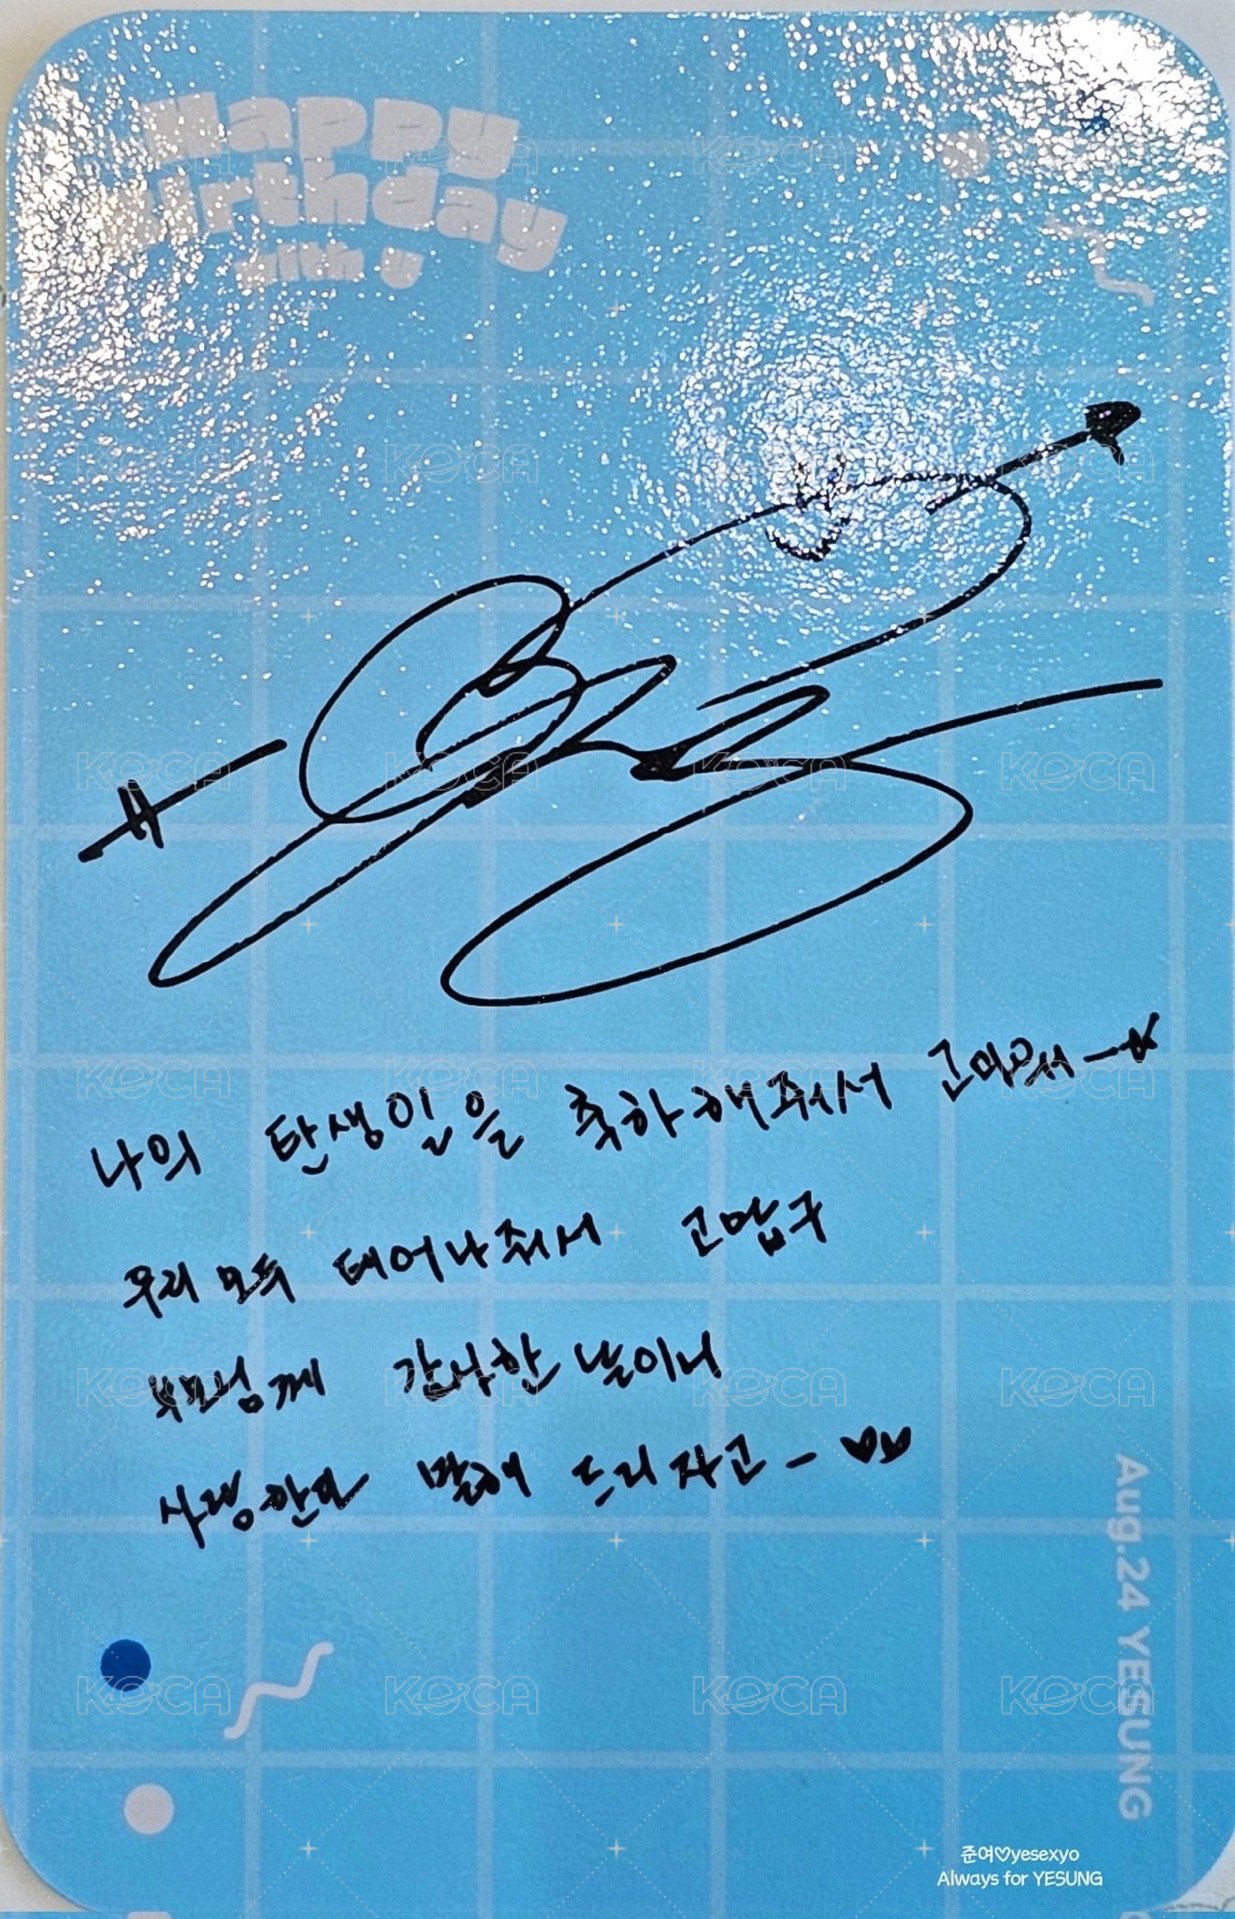 Happy
Birthday
with U
나의 탄생일을 축하해줘서 고마워~
우리 모두 태어나줘서 고맙구
부모님께 감사한 날이니
사랑한다 말해 드리자고~ ♥♥
Aug.24 YESUNG
준여♡yesexyo
Always for YESUNG
KOCA